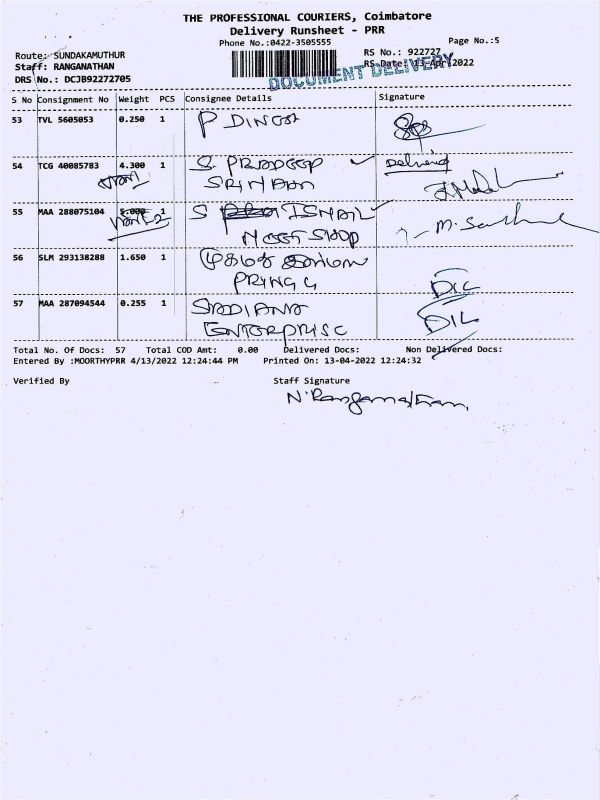 THE PROFESSIONAL COURIERS, Coimbatore
Delivery Runsheet - PRR
Phone No.:0422-3505555
Page No.:5
Route: SUNDAKAMUTHUR
RS No.: 922727
Staff: RANGANATHAN
RS Date: 13-Apr-2022
DRS No.: DCJB92272705
DOCUMENT DELIVERY
S No Consignment No Weight PCS Consignee Details Signature
53 TVL 5605053 0.250 1 P DINESH
54 TCG 40085783 4.300 1 S. PRADEEP
SRIHARI
55 MAA 288075104 5.000 1 S ISMAIL
MEET SHOP
M.
56 SLM 293138288 1.650 1
DIL
57 MAA 287094544 0.255 1
ENTERPRISE
DIL
Total No. Of Docs: 57 Total COD Amt: 0.00 Delivered Docs: Non Delivered Docs:
Entered By :MOORTHYPRR 4/13/2022 12:24:44 PM Printed On: 13-04-2022 12:24:32
Verified By Staff Signature
N. Ranganathan